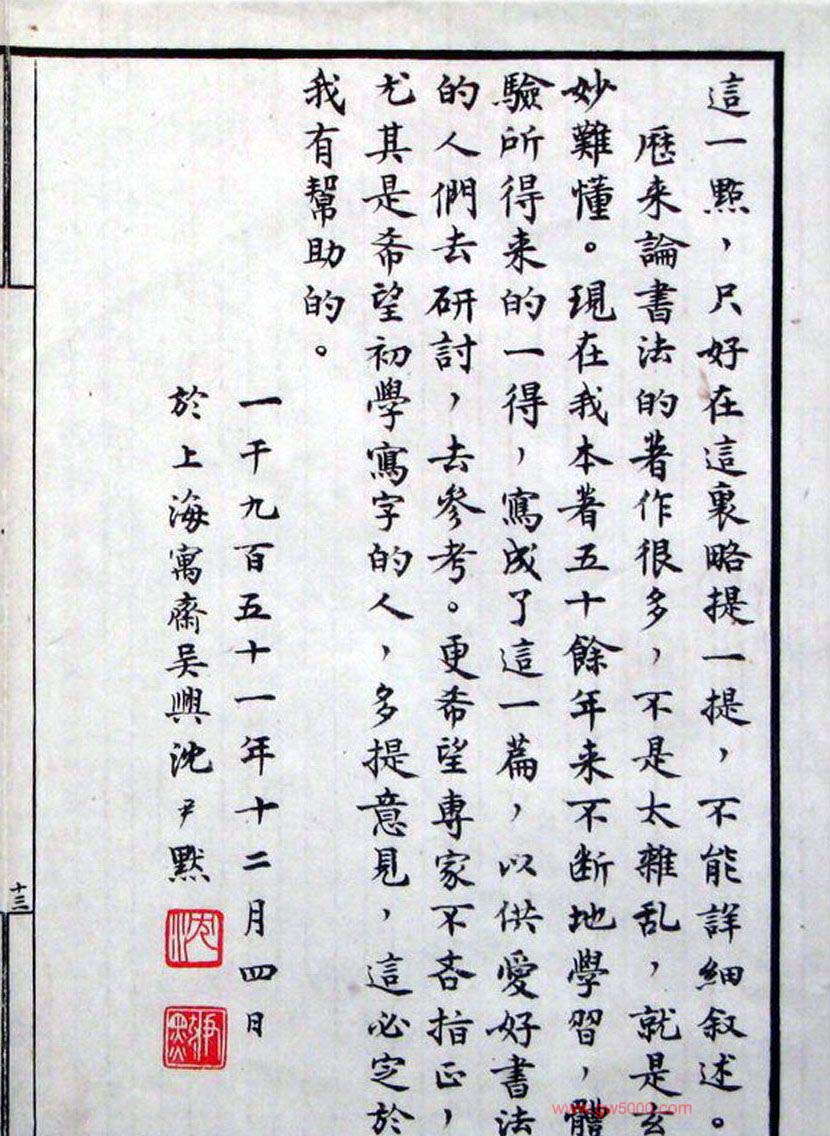 這一點，只好在這裏略提一提，不能詳細叙述。
歷来論書法的著作很多，不是太雜乱，就是玄
妙難懂。現在我本着五十餘年来不断地學習，體
驗所得来的一得，寫成了這一篇，以供愛好書法
的人們去研討，去參考。更希望專家不吝指正，
尤其是希望初學寫字的人，多提意見，這必定於
我有幫助的。
一千九百五十一年十二月四日
於上海寓齋吴興沈尹默
沈
尹默
十三
www.gw5000.com